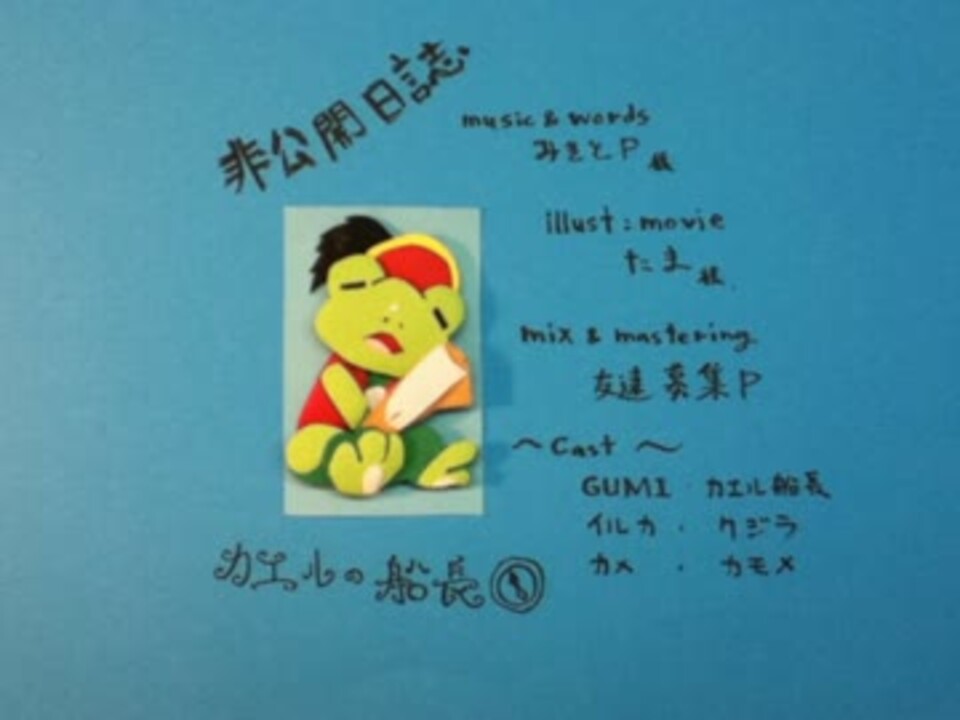 非公開日誌
music & words
みきとP 様
illust : movie
たま 様
mix & mastering
友達募集P
~ Cast ~
GUMI・カエル船長
イルカ・クジラ
カメ・カモメ
カエルの船長